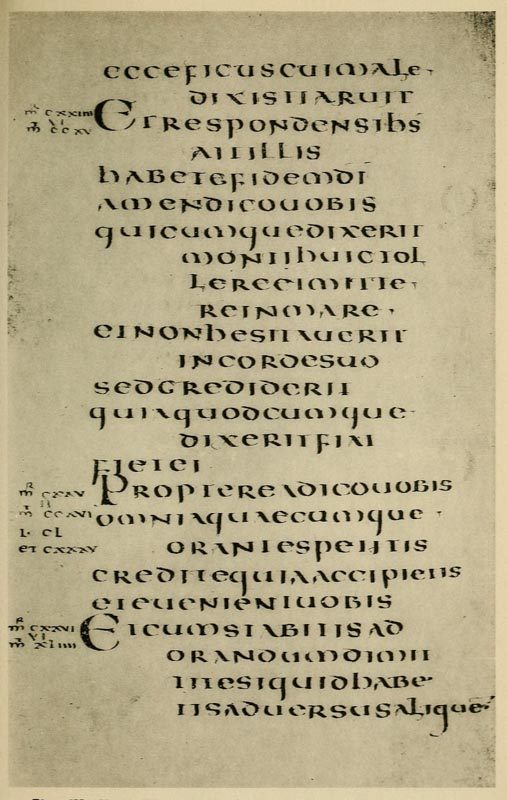 ecceficuscuimale·
dixistiaruit
m̅ cxxiiii
vi
m̅ ccxv
Etrespondensih̅s
aitillis
habetefidemdi̅
amendicouobis
quicumquedixerit
montihuictol
lereetmitte·
reinmare·
etnonhesitauerit
incordesuo
sedcrediderit
quiaquodcumque
dixeritfiat
fietei
m̅ cxxv
m̅ ccxvi
Proptereadicouobis
omniaquaecumque·
orantespetitis
creditequiaaccipietis
eteuenientuobis
m̅ cxxvi
vi
m̅ xliiii
Etcumstabitisad
orandumdimit
titesiquidhabe·
tisaduersusalique̅